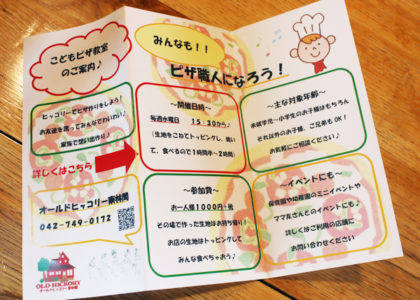 こどもピザ教室
のご案内♪
ヒッコリーでピザ作りをしよう!
お友達を誘ってみんなでわいわい♪
家族で思い出作り♪
詳しくはこちら
オールドヒッコリー東林間
042-749-0172
OLD HICKORY
オールドヒッコリー 東林間
みんなも!!
ピザ職人になろう!
~開催日時~
毎週水曜日 15:30から♪
(生地をこねてトッピングし、焼い
て、食べるので1時間半~2時間)
~参加費~
お一人様1000円+税
その場で作った生地はお持ち帰り!
お店の生地はトッピングして
みんな食べちゃおう♪
~主な対象年齢~
未就学児~小学生のお子様はもちろん
それ以外のお子様、ご兄弟も OK!
お気軽にご相談ください♪
~イベントにも~
保育園や幼稚園のミニイベントや
ママ友さんとのイベントにも♪
詳しくはご利用の店舗に
お問い合わせください